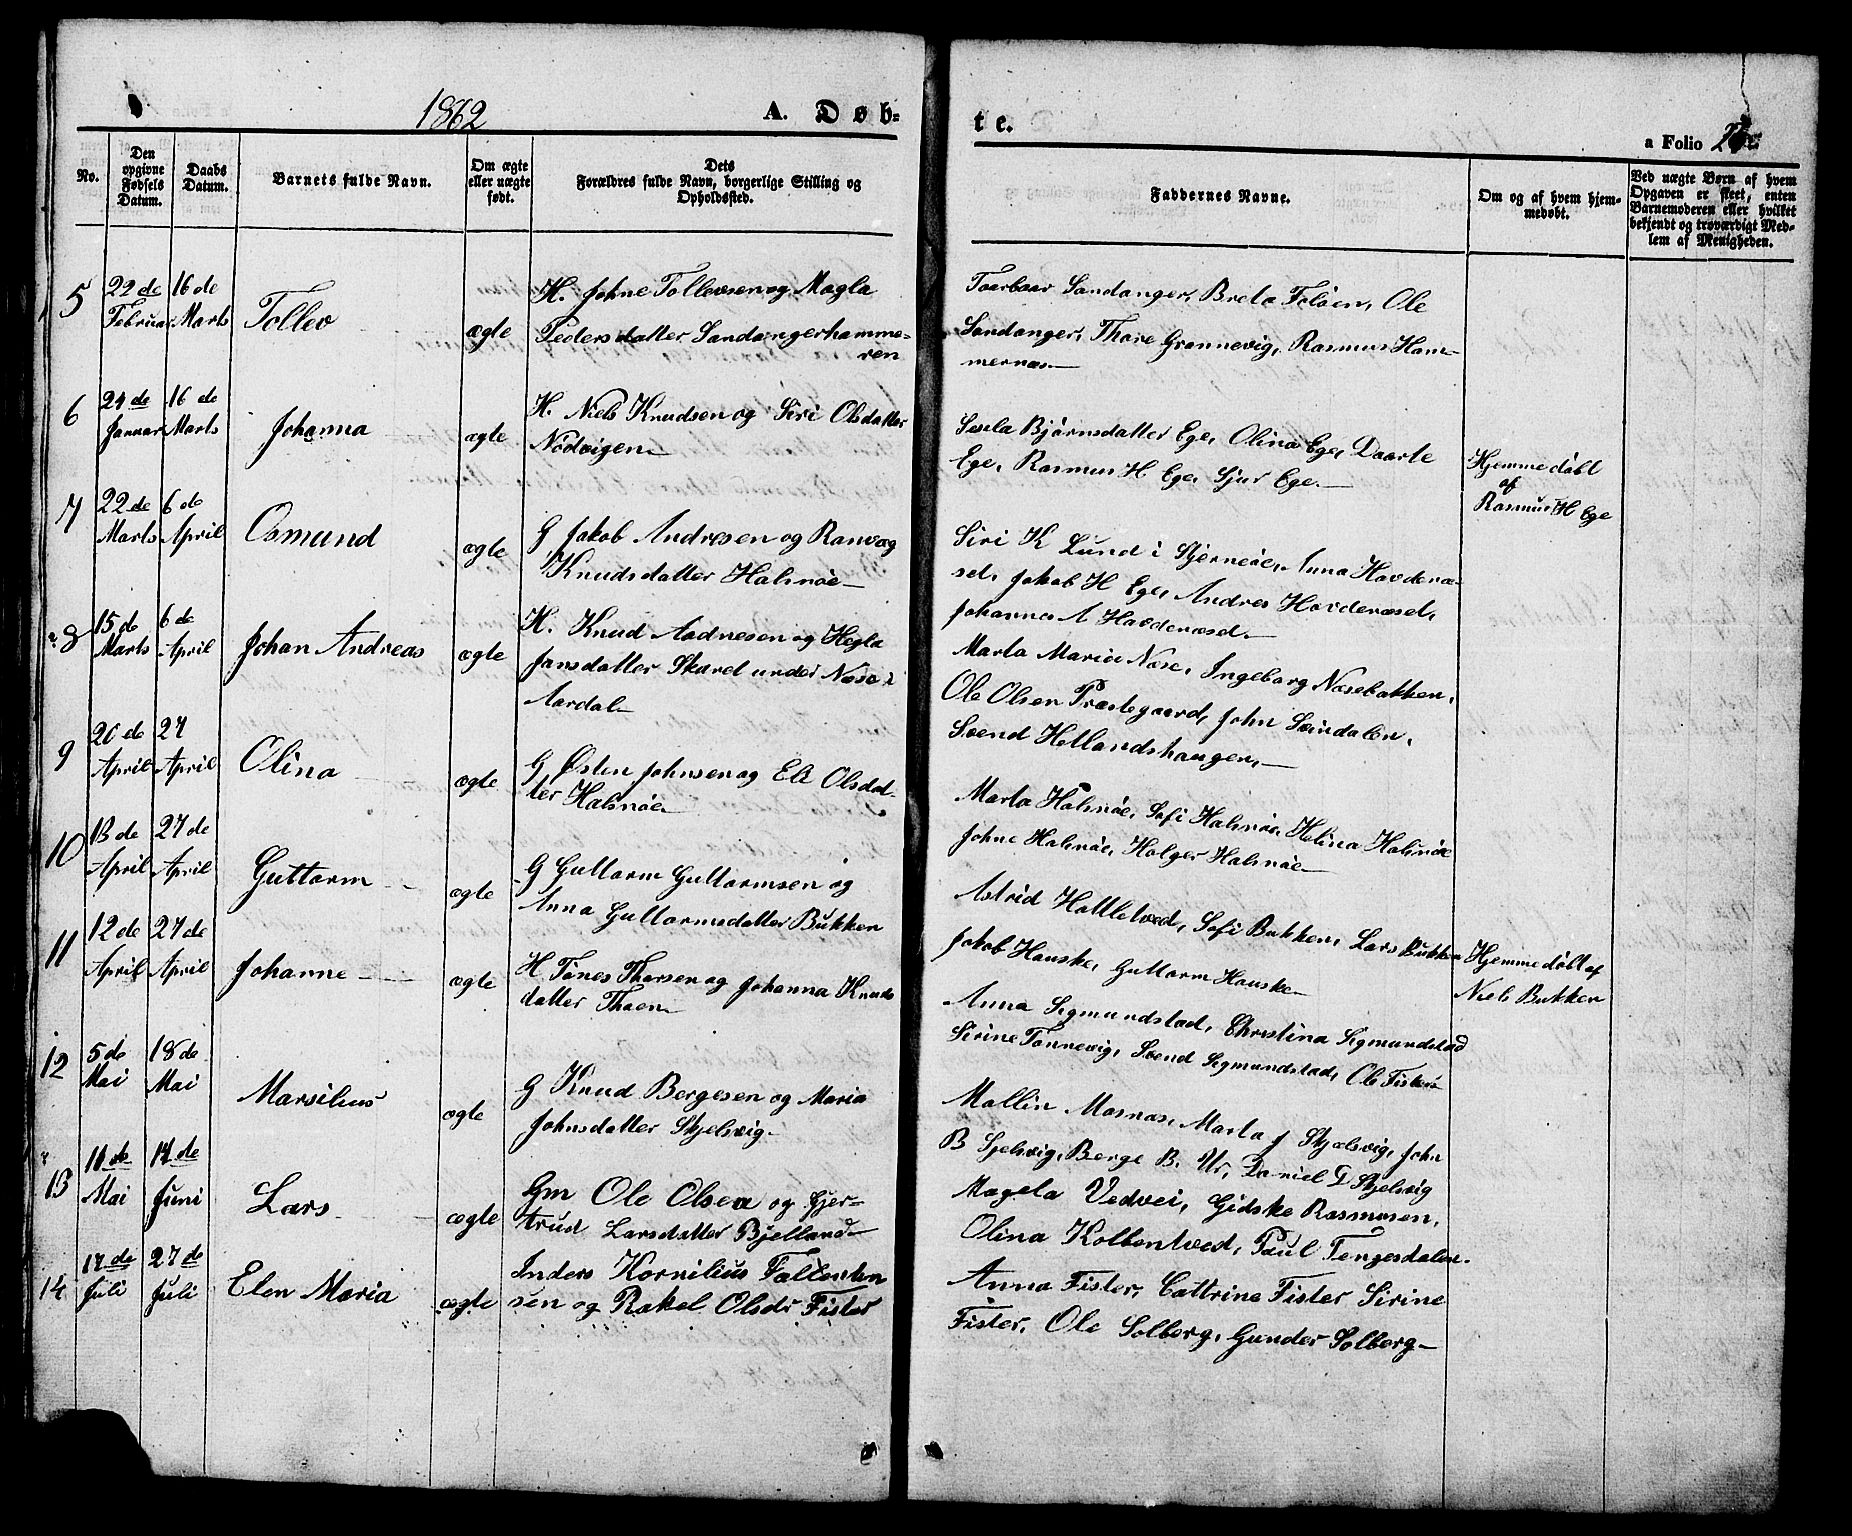 1862
A. Døb-
te.
a Folio
No.
Den opgivne Fødsels Datum.
Daabs Datum.
Barnets fulde Navn.
Om ægte eller uægte født.
Dets Forældres fulde Navn, borgerlige Stilling og Opholdssted.
Faddernes Navne.
Om og af hvem hjemmedøbt.
Ved uægte Børn af hvem Opgaven er skeet, enten Barnemoderen eller hvilket bekjendt og troværdigt Medlem af Menigheden.
5
22de Februar
16de Marts
Tollev
ægte
H. Johne Tollevsen og Magla
Pedersdatter Sandangerhamme-
ren
Sandanger, Breta Foløen, Ole
Sandanger, Thore Grønnevig, Rasmus Ham-
mernæs
6
24de Januar
16de Marts
Johanna
ægte
H. Niels Knudsen og Siri Olsdatter
Nødvigen
Sesela Bjørnsdatter Ege, Olina Ege, Daarte
Ege, Rasmus H Ege, Sjur Ege.
Hjemmedøbt
af
Rasmus H Ege
7
22de Marts
6de April
Osmund
ægte
G Jakob Andresen og Ranvæg
Knudsdatter Halsnøe
Siri K Lund i Sjernøe, Anna Hovderæ-
sel, Jakob H Ege, Andres Hovderæsel,
Johannes A Hovderæsel
8
15de Marts
6de April
Johan Andreas
ægte
H. Knud Aadnesen og Hegla
Jansdatter Skaret under Næse i
Aardal
Marta Maria Næse, Ingeborg Næsebakken,
Ole Olsen Præstegaard, John Svindalen,
Svend Hetlandshaugen,
9
20de April
27 April
Olina
ægte
G Østen Johnsen og Eli Olsdat-
ter Halsnøe
Marta Halsnøe, Sofi Halsnøe, Helina Halsnøe
Johne Halsnøe, Holger Halsnøe
10
13de April
27de April
Guttorm
ægte
G Guttorm Guttormsen og
Anna Guttormsdatter Bukken
Astrid Hattletved, Sofi Bukken, Lars Bukken
Jakob Hauske, Guttorm Hauske
Hjemmedøbt af
Niels Bukken
11
12de April
27de April
Johanne
ægte
H Tønes Thorsen og Johanna Knuds
datter Thoen
Anna Segmundstad, Christina Segmundstad
Sirine Tønnevig, Svend Segmundstad, Ole Fisker
12
5de Mai
18de Mai
Marsilius
ægte
G Knud Bergesen og Maria
Johnsdatter Skjelsvig
Mallin Mosnæs, Marta J Skjelsvig, John
B Sjelsvig, Berge B. Ur, Daniel D Skjelsvig
13
11de Mai
14de Juni
Lars
ægte
Gm Ole Olsen og Gjer-
trud Larsdatter Bjelland
Magela Vedvei, Gidske Rasmusen,
Olina Kolbentved, Paul Tengesdalen.
14
17de Juli
27de Juli
Elen Maria
ægte
Inders Kornilius Fallenten
sen og Rakel Olsdr Fister
Anna Fister, Cattrine Fister Sirine
Fister, Ole Solberg, Gunder Solberg